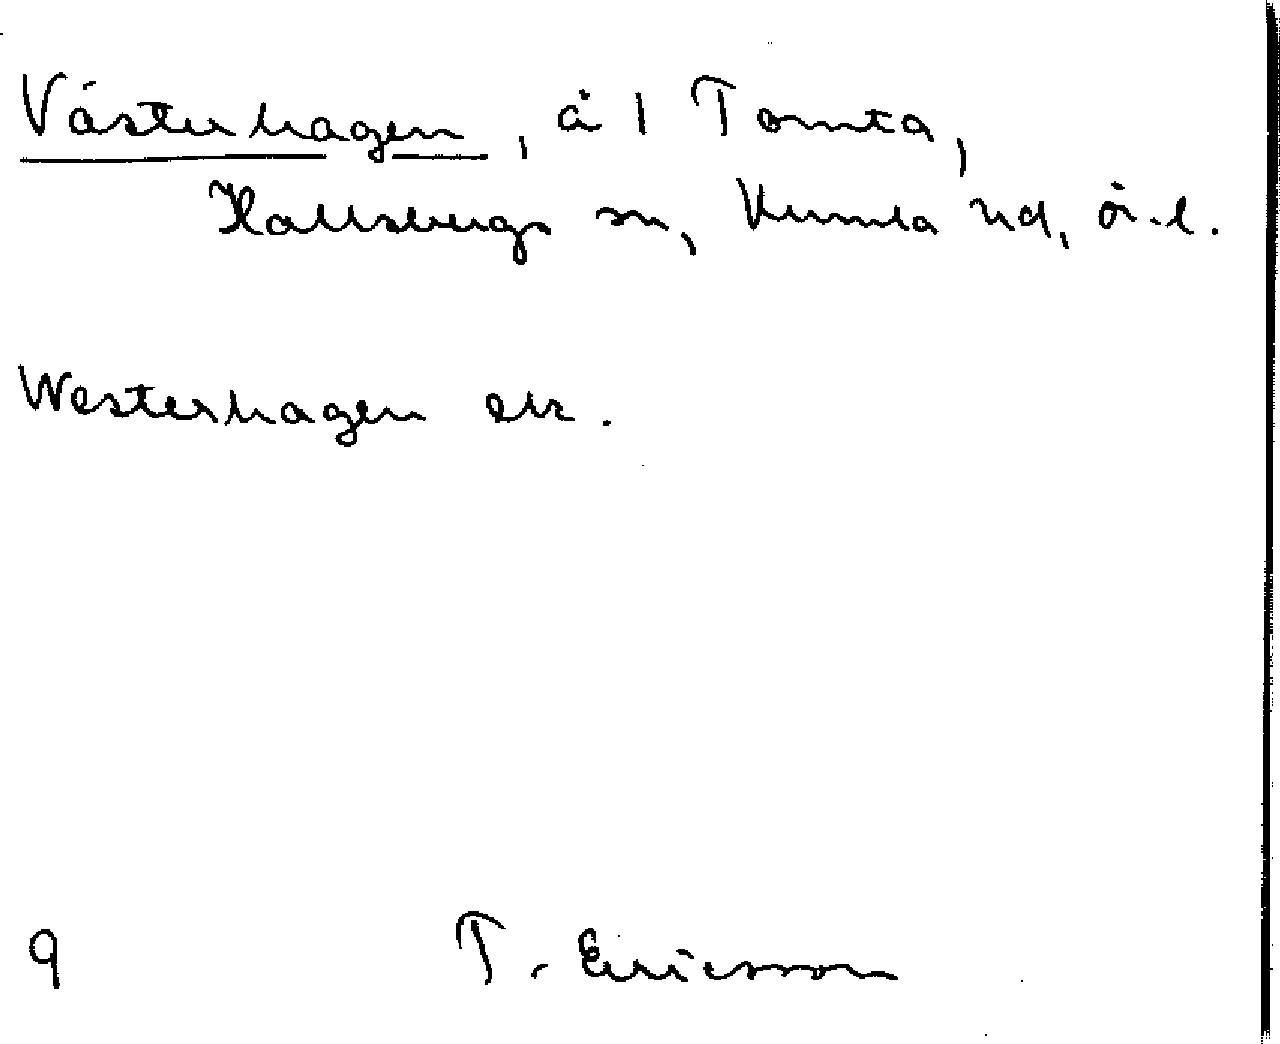 Västerhagen, å 1 Tomta,
Hallsbergs sn, Kumla hd, ö.l.
Westerhagen ek.
9 T. Ericsson